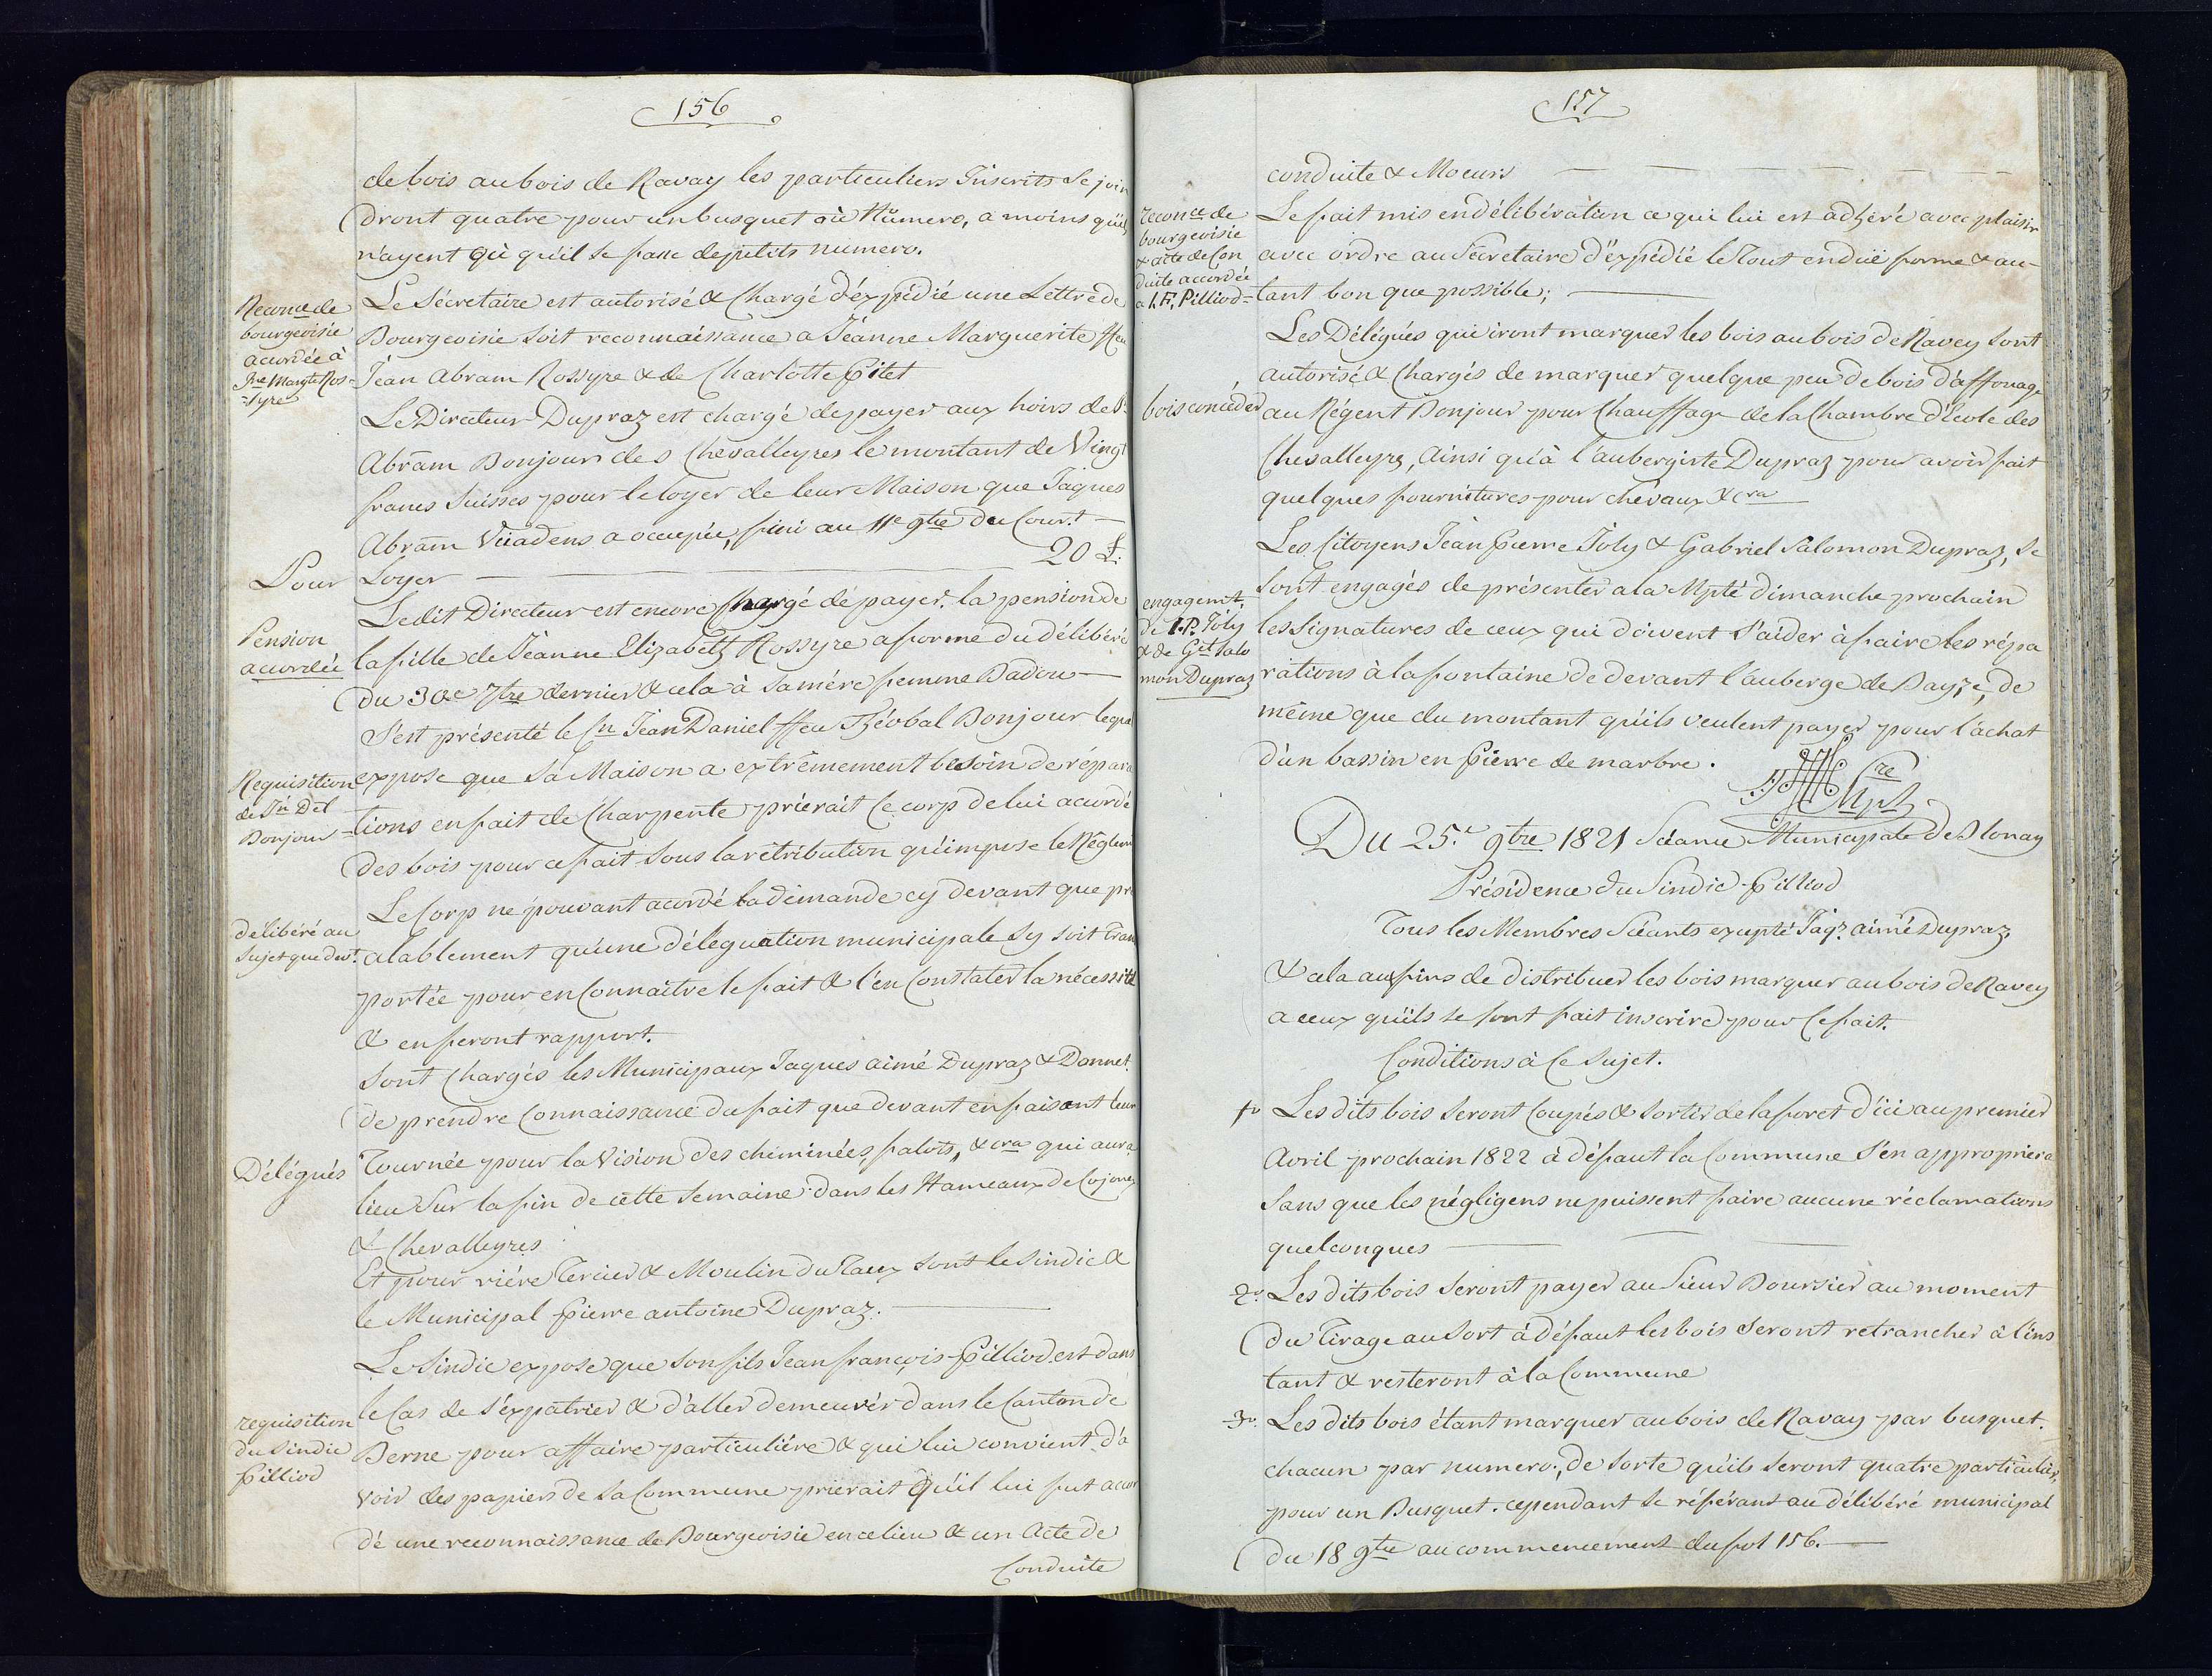 156
de bois au bois de Ravay les particuliers Inscrits se join
dront quatre pour un busquet où Numero, a moins qu'ils
n'ayent qu'il se fasse de petits numero.
Reconce de
bourgeoisie
accordée à
Jne Margte Ros=
=syre
Le Sécretaire est autorisé & Chargé d'éxpédié une Lettre de
Bourgeoisie soit reconnaissance a Jéanne Marguerite ffeu
Jean Abram Rossyre & de Charlotte Pilet
Le Directeur Dupraz est chargé de payer aux hoirs de
Abram Bonjour des Chevalleyres le montant de Vingt
francs Suisses pour le loyer de leur Maison que Jaques
Abram Vuadens a occupée, fini au 11e 9bre du Cour.t —
Pour
Loyer — 20 £:
Pension
acordée
Le dit Directeur est encore Chargé de payer la pension de
la fille de Jéanne Elizabeth Rossyre a forme du délibéré
du 30e 7bre dernier & cela à sa mére femme Badou —
Requisition
de Jn Del
Bonjour
S'est présenté le Cn Jean Daniel ffeu Théobal Bonjour lequel
expose que sa Maison a extrêmement besoin de répara
tions en fait de Charpente prierait ce corp de lui acordé
des bois pour ce fait sous la rétribution qu'impose le Réglem
délibéré au
sujet que devt.
Le Corp ne pouvant acordé la demande cy devant que pré
alablement qu'une délèguation municipale sy soit trans
portée pour en Connaître le fait & l'en Constater la nécessité
& en feront rapport.
Délégués
Sont Chargés les Municipaux Jaques aimé Dupraz & Donnet
de prendre Connaissance du fait que devant en faisant leur
Tournée pour la Vision des cheminées, falots, & cra qui aura
lieu sur la fin de cette semaine dans les Hameaux de Cojonex
& Chevalleyres
Et pour riére Tercier & Moulin du sont le Sindic &
le Municipal Pierre antoine Dupraz. —
requisition
du Sindic
Pilliod
Le Sindic expose que son fils Jean françois Pilliod est dans
le Cas de s'éxpatrier & d'aller demeurér dans le Canton de
Berne pour affaire particuliére & qui lui convient d'a
voir des papiers de sa Commune prierait qu'il lui fut accor
dé une reconnaissance de Bourgeoisie en ce lieu & un Acte de
Conduite
157
conduite & Moeurs —
reconce de
bourgeoisie
& acte de Con
duite accordée
a J. F. Pilliod=
Le fait mis en délibération ce qui lui est adhéré avec plaisir
avec ordre au Sécretaire d'éxpédié le Tout en dûe forme & au-
tant bon que possible; —
bois concéder
Les Délégués qui iront marquer les bois au bois de Ravey sont
autorisé & Chargés de marquer quelque peu de bois d'affouage
au Régent Bonjour pour Chauffage de la Chambre d'école des
Chevalleyres, ainsi qu'à l'aubergiste Dupraz pour avoir fait
quelques fournitures pour chévaux & cra —
engagemt.
de J. P. Joly
& de Gel Salo
mon Dupraz
Les Citoyens Jean Pierre Joly & Gabriel Salomon Dupraz, se
sont engagés de présenter a la Mpté dimanche prochain
les Signatures de ceux qui doivent s'aider à faire les répa
rations à la fontaine de devant l'auberge de Bayse, de
même que du montant qu'ils veulent payer pour l'achat
d'un bassin en Pierre de marbre.
Du 25e 9bre 1821 Séance Municipale de Blonay
Présidence du Sindic Pilliod
Tous les Membres Séants exepté Jaqs. aimé Dupraz,
& cela aux fins de distribuer les bois marquer au bois de Ravey
a ceux qu'ils se sont fait inscrire pour ce fait.
Conditions à ce Sujet.
1o Les dits bois seront Coupés & sortir de la foret d'ici au premier
Avril prochain 1822 à défaut la Commune s'en appropriera
sans que les négligens ne puissent faire aucune réclamations
quelconques —
2o. Les dits bois seront payer au Sieur Boursier au moment
du Tirage au sort à défaut les bois seront retrancher à l'ins
tant & resteront à la Commune
3o. Les dits bois étant marquer au bois de Ravay par busquet.
chacun par numero, de sorte qu'ils seront quatre particuliers
pour un Busquet. cependant se réferant au délibéré municipal
du 18 9bre au commencement du fol 156. —